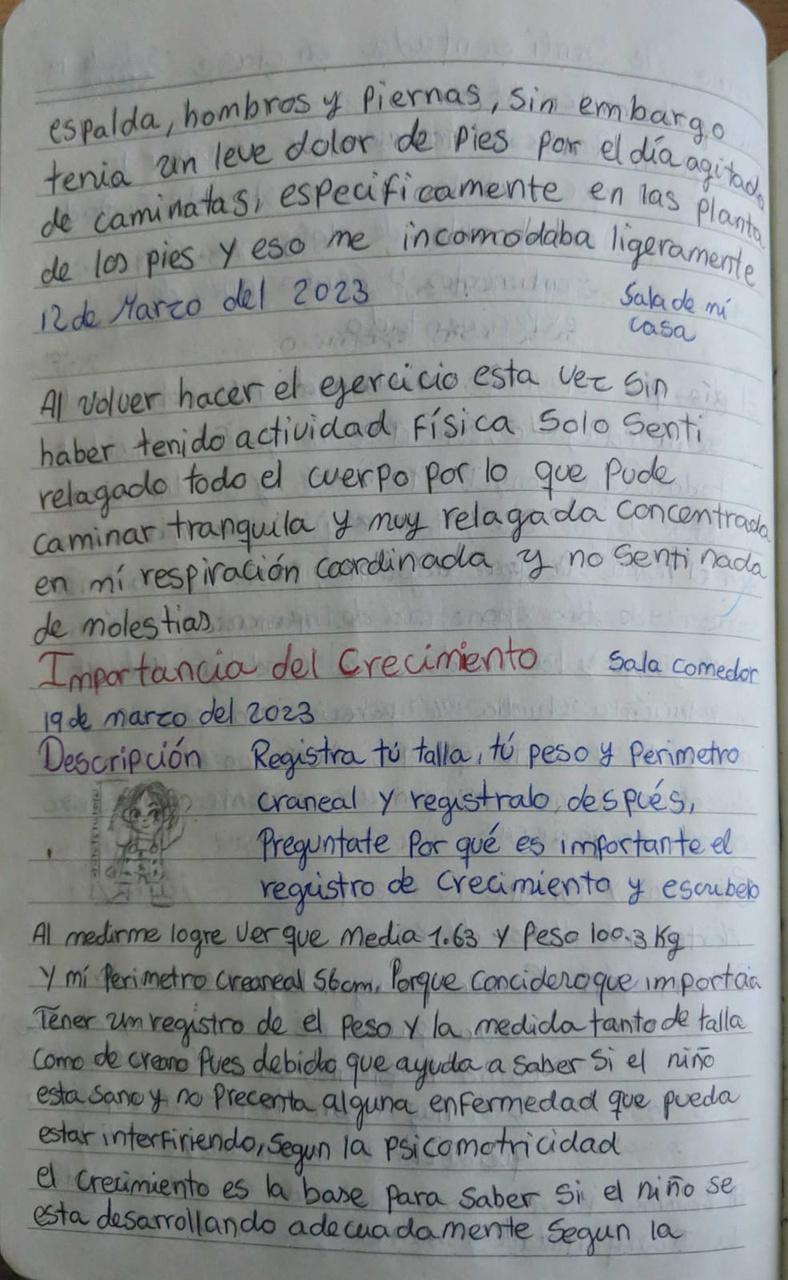 espalda, hombros y piernas, sin embargo
tenia un leve dolor de pies por el día agitado
de caminatas, especificamente en las planta
de los pies y eso me incomodaba ligeramente
12 de Marzo del 2023 Sala de mí
casa
Al volver hacer el ejercicio esta vez sin
haber tenido actividad física solo senti
relagado todo el cuerpo por lo que pude
caminar tranquila y muy relagada concentrada
en mí respiración coordinada y no senti nada
de molestias
Importancia del Crecimiento Sala comedor
19 de marzo del 2023
Descripción Registra tú talla, tú peso y Perimetro
craneal y registralo después,
Preguntate por qué es importante el
registro de Crecimiento y escribelo
Al medirme logre ver que media 1.63 y Peso 100.3 Kg
y mí Perimetro creaneal 56cm. Porque concidero que importan
Tener un registro de el peso y la medida tanto de talla
como de creano Pues debido que ayuda a saber si el niño
esta sano y no Precenta alguna enfermedad que pueda
estar interfiriendo, segun la psicomotricidad
el crecimiento es la base para saber si el niño se
esta desarrollando adecuadamente segun la